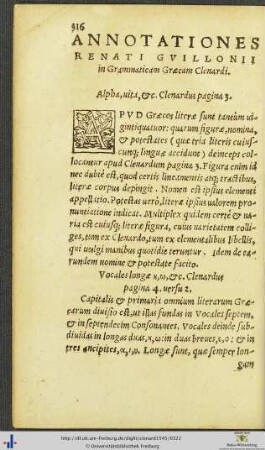 316
ANNOTATIONES
RENATI GVILLONII
in Grammaticam Græcam Clenardi.
Alpha, uita, &c. Clenardus pagina 3.
APVD Græcos literæ sunt tantum ui-
gintiquatuor: quarum figuræ, nomina,
& potestates (quæ tria literis cuius-
cunq; linguæ accidunt) deinceps col-
locantur apud Clenardum pagina 3. Figura enim id
nec dubiè est, quod certis lineamentis atq; tractibus,
literæ corpus depingit. Nomen est ipsius elementi
appellatio. Potestas uerò, literæ ipsius ualorem pro-
nuntiatione indicat. Multiplex quidem certè & ua-
ria est cuiusq; literæ figura, cuius uarietatem colli-
ges, tum ex Clenardo, tum ex elementalibus libellis,
qui uulgi manibus quotidie teruntur. Idem de ea-
rundem nomine & potestate facito.
Vocales longæ η, ω, &c. Clenardus
pagina 4. uersu 2.
Capitalis & primaria omnium literarum Græ-
carum diuisio est, ut illas fundas in Vocales septem,
& in septendecim Consonantes. Vocales deinde sub-
diuidas in longas duas, η, ω: in duas breues, ε, ο: & in
tres ancipites, α, ι, υ. Longæ sunt, quæ semper lon-
gam
http://dl.ub.uni-freiburg.de/diglit/clenard1545/0322
© Universitätsbibliothek Freiburg